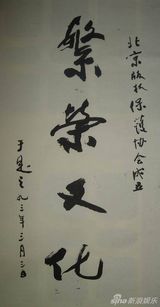 北京版权保护协会成立
繁荣文化
于是之九三年三月三日
sina 新浪娱乐